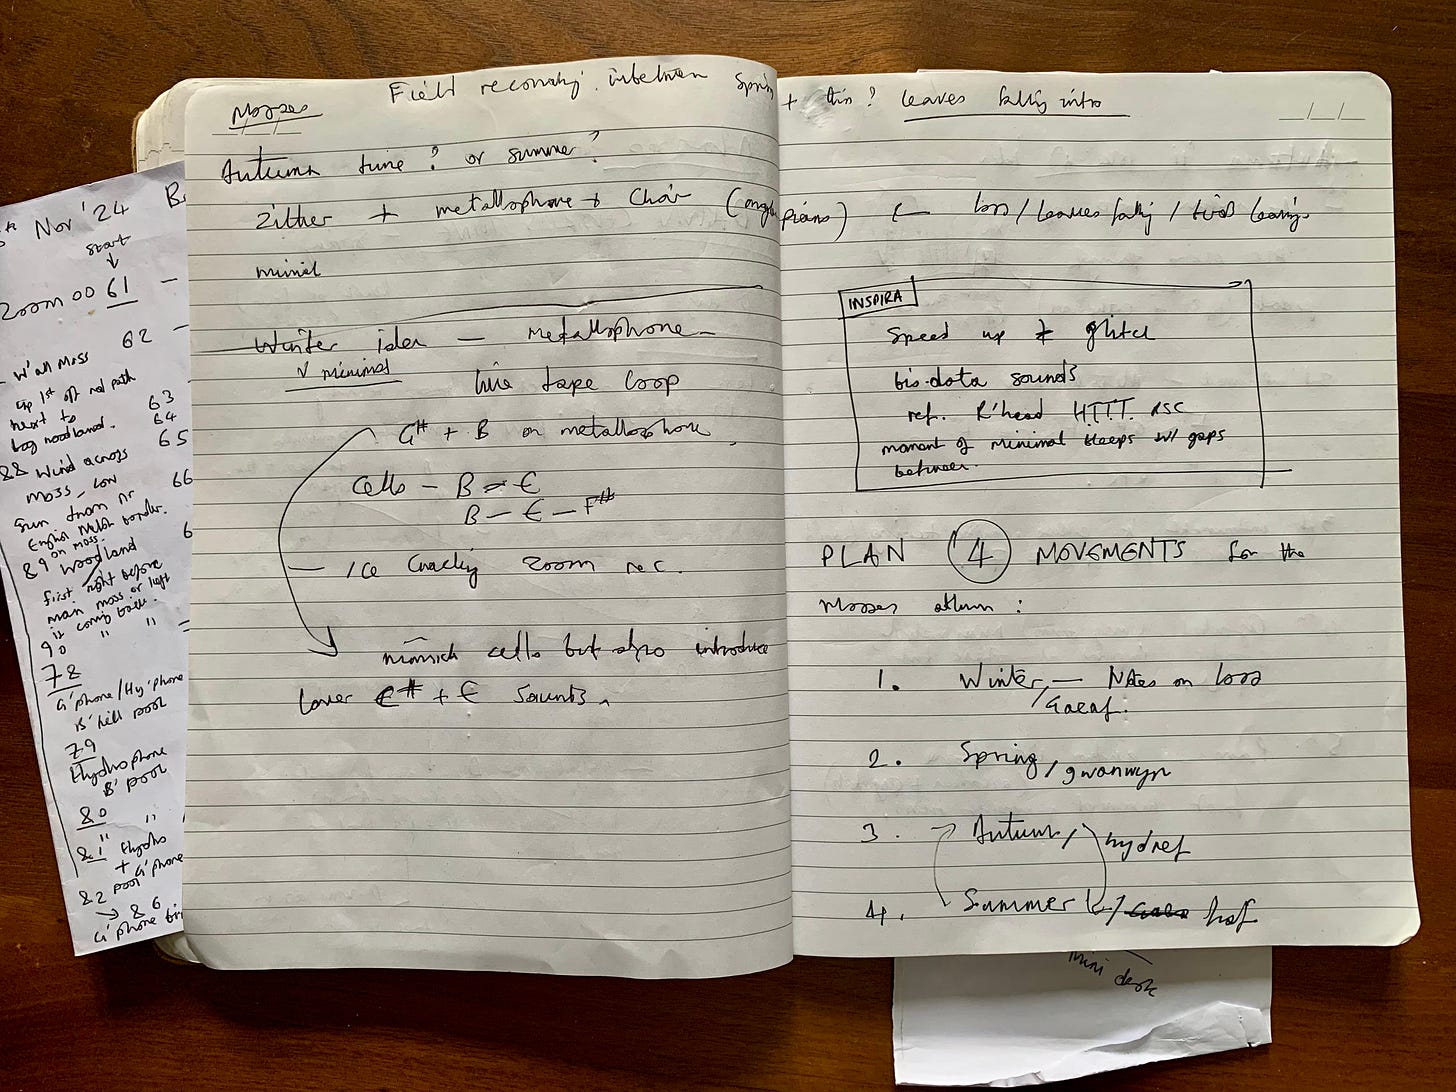 5th Nov '24 B
start
↓
Zoom 00 61 –
62 –
– W'all moss
up 1st off red path
next to
bog woodland.
63
64
65
88 Wind across
moss – low
66
Gun from nr
English Welsh border.
on moss.
89 Woodland
6
first right before
main moss or left
if coming back.
90 " "
78
G'phone/Hy'phone
B'hill pool
79
Hydrophone
B' pool
80
" "
81 " Hydro
+
82 pool G'phone
→ 86
G'phone
Mosses
Field recording inbetween Spring + this? leaves falling intro
Autumn tune? or summer?
Zither + metallophone + Choir (ongle piano) ← loss/leaves falling/birds leaving
minimal
Winter idea – metallophone –
v minimal
live tape loop
G# + B on metallophone.
Cells – B – E
B – E – F#
– Ice Cracking Zoom rec.
mimick cells but also introduce
lower C# + E sounds.
INSPIRA
Speed up + glitch
bio-data sounds
ref. R'head HTTT.
moment of minimal bleeps w/ gaps
between.
PLAN 4 MOVEMENTS for the
Mosses album :
1. Winter, – Notes on loss
/Gaeaf.
2. Spring/gwanwyn
3. Autumn/hydref
4. Summer/haf
mini desk